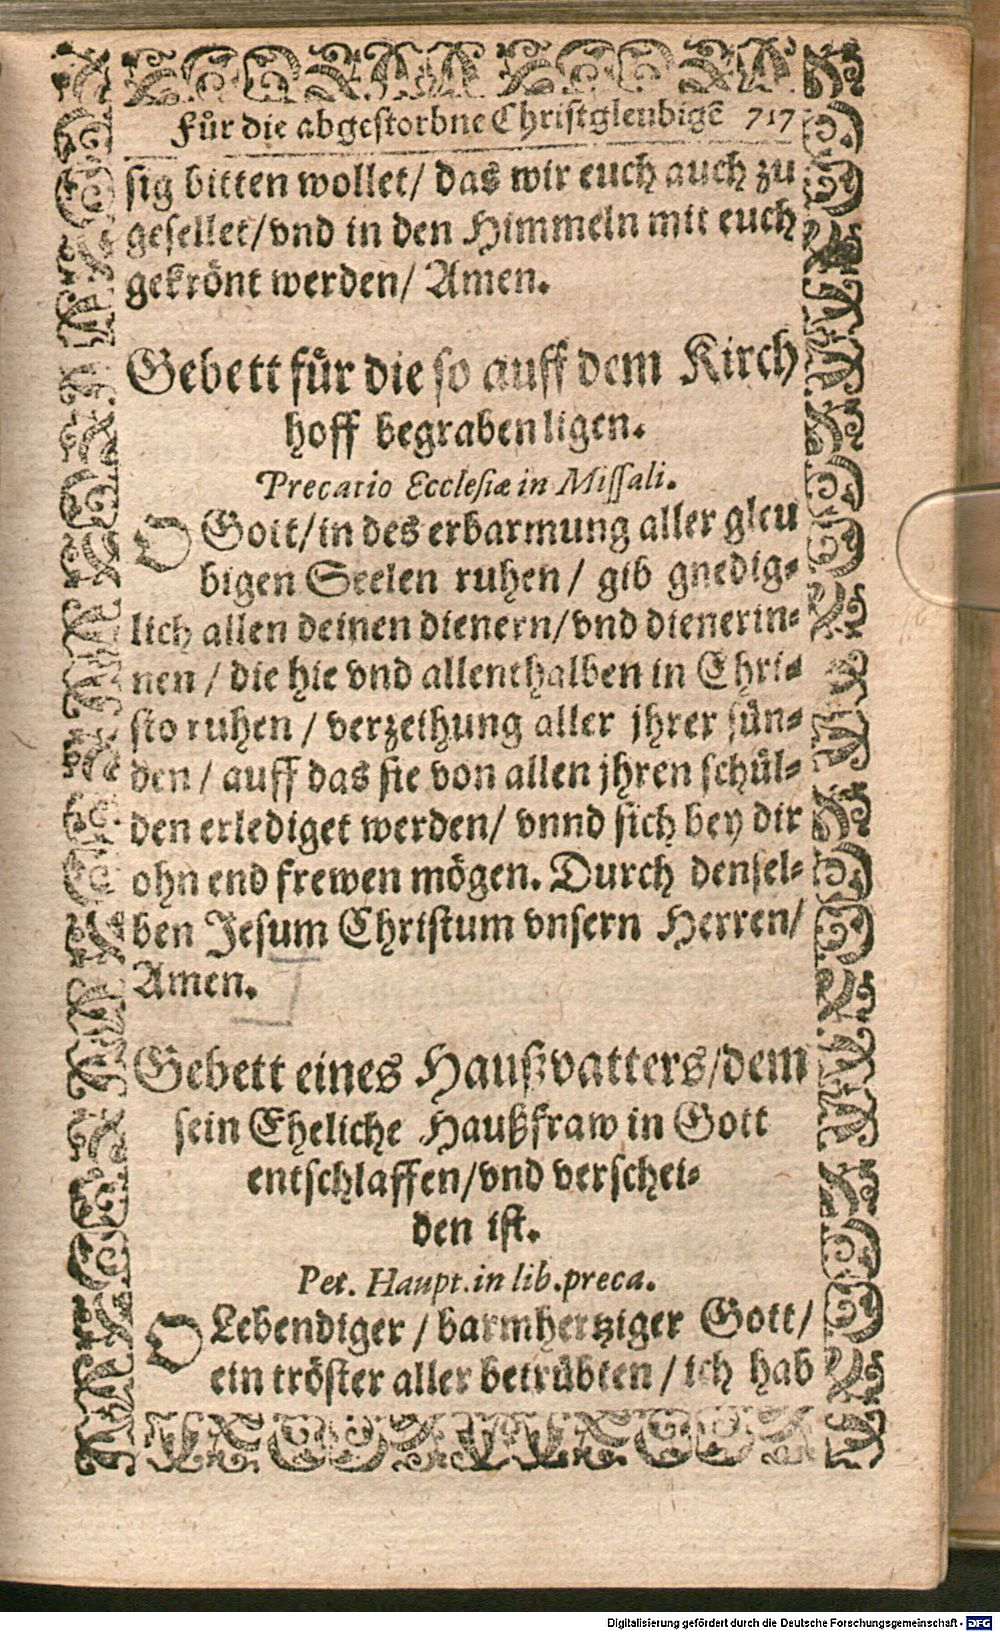 Fůr die abgestorbne Christgleubigẽ 717
sig bitten wollet/ das wir euch auch zu
gesellet/vnd in den Himmeln mit euch
gekrönt werden/ Amen.
Gebett fůr die so auff dem Kirch
hoff begraben ligen.
Precatio Ecclesiæ in Missali.
O Gott/in des erbarmung aller gleu
bigen Seelen ruhen/ gib gnedig-
lich allen deinen dienern/vnd dienerin-
nen / die hie vnd allenthalben in Chri-
sto ruhen / verzeihung aller jhrer sůn-
den / auff das sie von allen jhren schůl-
den erlediget werden/ vnnd sich bey dir
ohn end frewen mögen. Durch densel-
ben Jesum Christum vnsern Herren/
Amen.
Gebett eines Haußvatters/dem
sein Eheliche Haußfraw in Gott
entschlaffen/vnd verschei-
den ist.
Pet. Haupt. in lib. preca.
O Lebendiger / barmhertziger Gott/
ein tröster aller betrůbten / ich hab
Digitalisierung gefördert durch die Deutsche Forschungsgemeinschaft - DFG